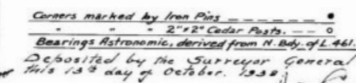 Corners marked by Iron Pins ●
" " " 2"x2" Cedar Posts. ○
Bearings Astronomic, derived from N. Bdy. of L. 461.
Deposited by the Surveyor General
this 13th day of October. 1938.